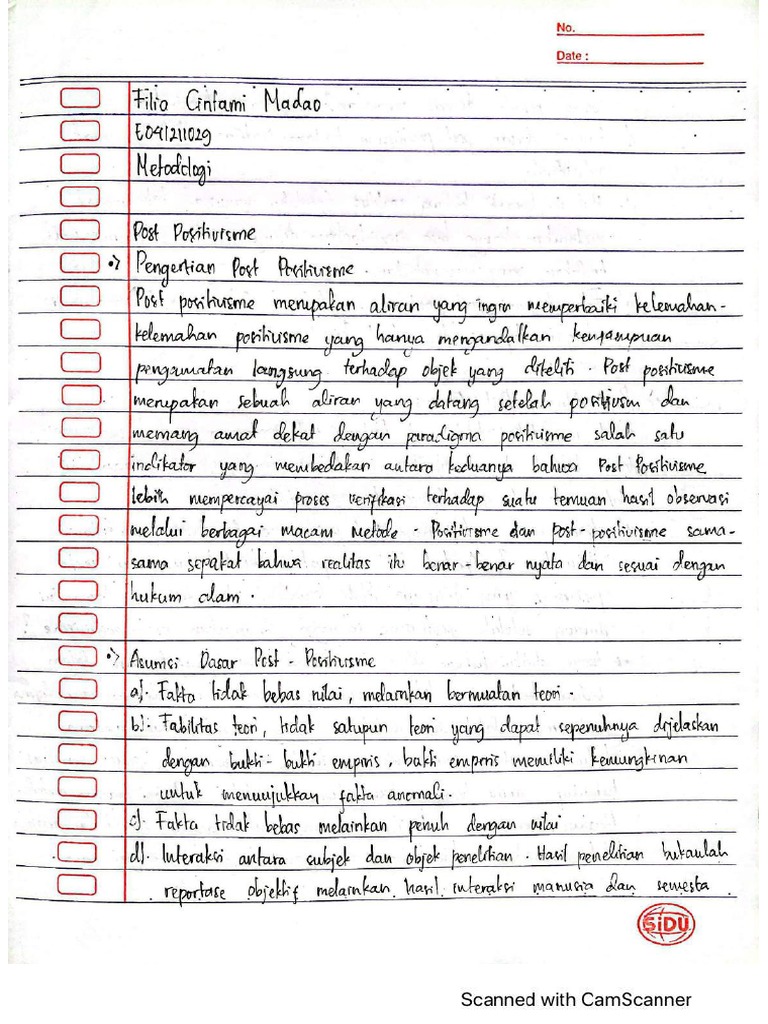 No.
Date :
Filio Cintami Madao
E041211029
Metodologi
Post Positivisme
•> Pengertian Post Positivisme.
Post positivisme merupakan aliran yang ingin memperbaiki kelemahan-
kelemahan positivisme yang hanya mengandalkan kemampuan
pengamatan langsung terhadap objek yang diteliti. Post positivisme
merupakan sebuah aliran yang datang setelah positivism dan
memang amat dekat dengan paradigma positivisme salah satu
indikator yang membedakan antara keduanya bahwa Post Positivisme
lebih mempercayai proses verifikasi terhadap suatu temuan hasil observasi
melalui berbagai macam metode. Positivisme dan post-positivisme sama-
sama sepakat bahwa realitas itu benar-benar nyata dan sesuai dengan
hukum alam.
•> Asumsi Dasar Post-Positivisme
a). Fakta tidak bebas nilai, melainkan bermuatan teori.
b). Fabilitas teori, tidak satupun teori yang dapat sepenuhnya dijelaskan
dengan bukti-bukti empiris, bukti empiris memiliki kemungkinan
untuk menunjukkan fakta anomali.
c). Fakta tidak bebas melainkan penuh dengan nilai
d). Interaksi antara subjek dan objek penelitian. Hasil penelitian bukanlah
reportase objektif melainkan hasil interaksi manusia dan semesta
SiDU
Scanned with CamScanner